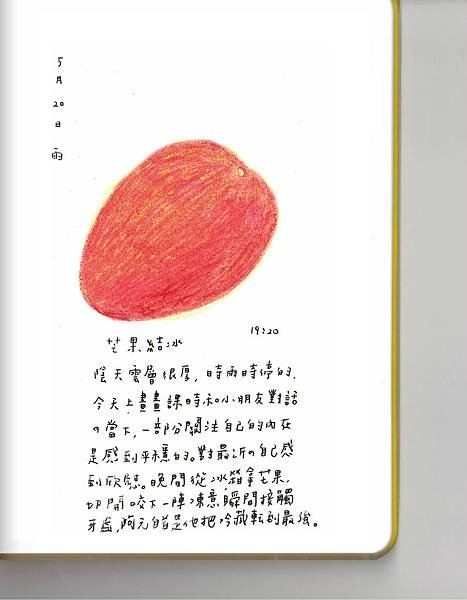 5月20日 雨
19:20
芒果結冰
陰天雲層很厚，時雨時停的，
今天上畫畫課時和小朋友對話
の當下，一部分關注自己的內在
是感到平穩的。對最近の自己感
到欣慰。晚間從冰箱拿芒果，
切開咬下一陣凍意瞬間接觸
牙齒，阿元自首是他把冷藏転到最強。